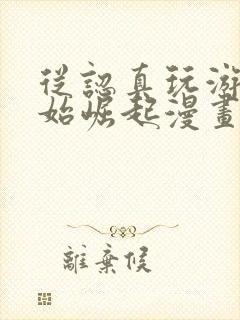 從認真玩游
始崛起漫畫
離棄候